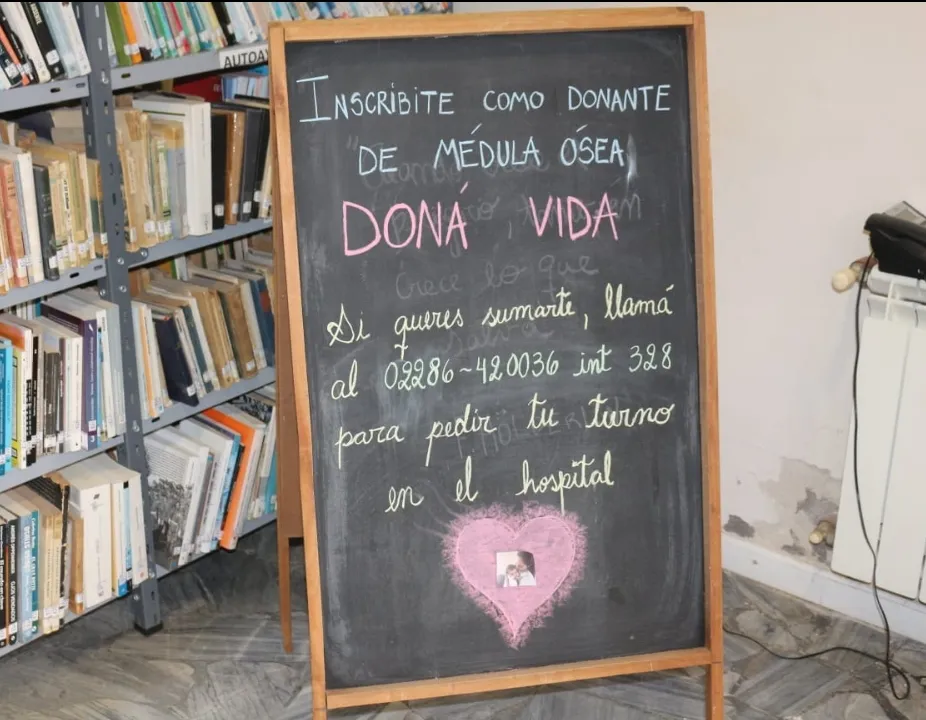 AUTOA
INSCRIBITE COMO DONANTE
DE MÉDULA ÓSEA
DONÁ VIDA
Si queres sumarte, llamá
al 02286-420036 int 328
para pedir tu turno
en el hospital